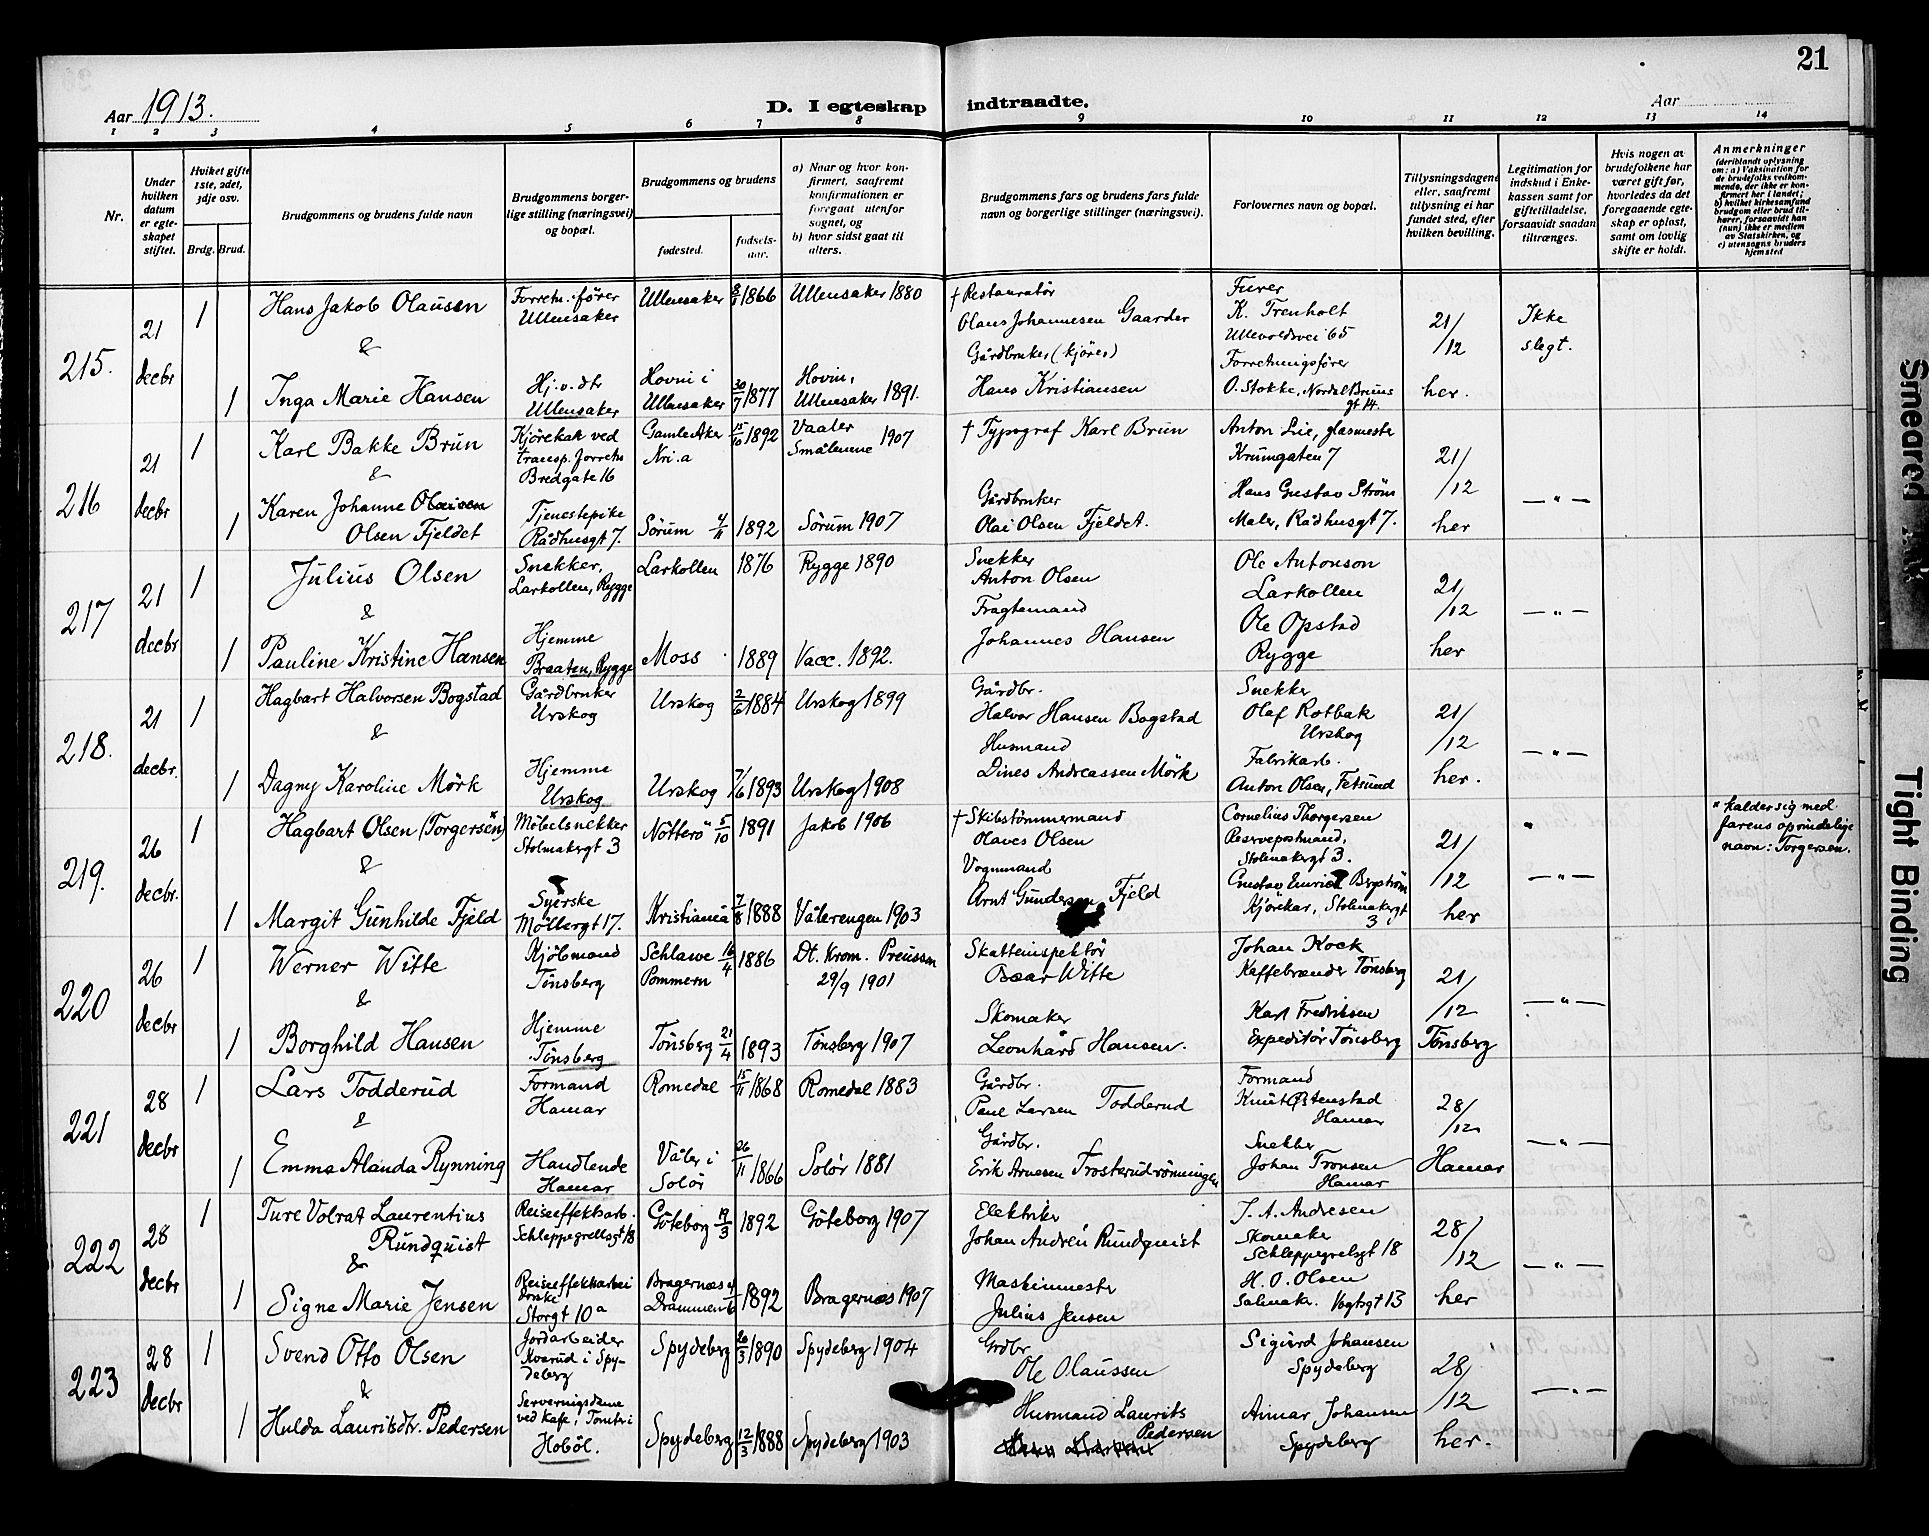 21
Aar 1913.
D. I egteskap indtraadte.
Aar
1 2 3 4 5 6 7 8 9 10 11 12 13 14
Nr.
Under hvilken datum er egteskapet stiftet.
Hvilket gifte 1ste, 2det, 3dje osv.
Brdg. Brud.
Brudgommens og brudens fulde navn
Brudgommens borgerlige stilling (næringsvei) og bopæl.
Brudgommens og brudens
fødested.
fødselsaar.
a) Naar og hvor konfirmert, saafremt konfirmationen er foregaat utenfor sognet, og
b) hvor sidst gaat til alters.
Brudgommens fars og brudens fars fulde navn og borgerlige stillinger (næringsvei).
Forlovernes navn og bopæl.
Tillysningsdagene eller, saafremt tillysning ei har fundet sted, efter hvilken bevilling.
Legitimation for indskud i Enkekassen samt for giftetilladelse, forsaavidt saadan tiltrænges.
Hvis nogen av brudefolkene har været gift før, hvorledes da det foregaaende egteskap er opløst, samt om lovlig skifte er holdt.
Anmerkninger
(deriblandt oplysning om: a) Vaksination for de brudefolks vedkommende, der ikke er konfirmert her i landet; b) hvilket kirkesamfund brudgom eller brud tilhører, forsaavidt han (hun) ikke er medlem av Statskirken, og c) utensogns bruders hjemsted
215. 21 decbr 1 Hans Jakob Olausen Forretn.fører Ullensaker Ullensaker 8/1 1866 Ullensaker 1880 † Restauratør Olaus Johannesen Gaarder Furer K. Trenholt Ullevoldsvei 65 21/12 Ikke slegt.
&
1 Inga Marie Hansen Hj.v.dtr Ullensaker Hovni i Ullensaker 30/7 1877 Hovin, Ullensaker 1891. Gårdbruker (kjører) Hans Kristiansen Forretningsfører O. Stokke, Nordal Bruns gt 14. her.
216 21 decbr 1 Karl Bakke Brun Kjørekak ved transp. forretn Bredgate 16 Gamle Aker Kri.a 15/10 1892 Vaaler Smålenene 1907 † Typograf Karl Brun Anton Lie, glasmester Krumgaten 7 21/12 — " —
&
1 Karen Johanne Olaisen Olsen Fjeldet Tjenestepike Rådhusgt 7. Sørum 4/11 1892 Sørum 1907 Gårdbruker Olai Olsen Fjeldet. Hans Gustav Strøm Maler, Rådhusgt 7. her
217 21 decbr 1 Julius Olsen Snekker, Larkollen, Rygge Larkollen 1876 Rygge 1890 Snekker Anton Olsen Ole Antonson Larkollen 21/12 — " —
&
1 Pauline Kristine Hansen Hjemme Braaten, Rygge Moss 1889 Vacc. 1892. Fragtemand Johannes Hansen Ole Opstad Rygge her
218. 21 decbr. 1 Hagbart Halvorsen Bogstad Gårdbruker Urskog Urskog 2/6 1884 Urskog 1899 Gårdbr. Halvor Hansen Bogstad Snekker Olaf Rotbak Urskog 21/12 — " —
&
1 Dagny Karoline Mørk Hjemme Urskog Urskog 7/6 1893 Urskog 1908 Husmand Dines Andreassen Mørk Fabrikarb. Anton Olsen, Fetsund her.
219. 26 decbr. 1 Hagbart Olsen (Torgersen) Møbelsnekker Stolmakergt 3 Nøtterø 5/10 1891 Jakob 1906 † Skibstømmermand Olaves Olsen Cornelius Thorgersen Reservepostmand, Stolmakergt 3. 21/12 — " — " kalder sig med farens oprindelige navn: Torgersen.
&
1 Margit Gunhilde Fjeld Syerske Møllergt 17. Kristiania 7/8 1888 Vålerengen 1903 Vognmand Arnt Gundersen Fjeld Gustav Bergstrøm Kjørekar, Stolmakergt 3 her
220 26 decbr 1 Werner Witte Kjøbmand Tønsberg Schlawe Pommern 16/4 1886 Dt. Krom. Preussen 29/9 1901 Skatteinspektør Oscar Witte Johan Kock Kaffebrænder Tønsberg 21/12 — " —
&
1 Borghild Hansen Hjemme Tønsberg Tønsberg 21/4 1893 Tønsberg 1907 Skomaker Leonhard Hansen. Karl Fredriksen Expeditør Tønsberg Tønsberg
221 28 decbr 1 Lars Todderud Formand Hamar Romedal 15/11 1868 Romedal 1883 Gårdbr. Paul Larsen Todderud Formand Knut Østenstad Hamar 28/12 — " —
&
1 Emma Alanda Rynning Handlende Hamar Våler i Solør 26/11 1866 Solør 1881 Gårdbr. Erik Arnesen Frosterudrønningen Snekker Johan Tronsen Hamar Hamar
222 28 decbr 1 Ture Volrat Laurentius Rundquist Reiseeffektarb. Schleppegrellsgt 18 Göteborg 19/3 1892 Göteborg 1907 Elektriker Johan Andreń Rundquist T. A. Andresen Skomaker Schleppegrelsgt 18 28/12 — " —
&
1 Signe Marie Jensen Reiseeffektarbeiderske Storgt 10a Bragernæs Drammen 1892 Bragernæs 1907 Maskinmester Julius Jensen H. O. Olsen Salmaker. Vogtsgt 13 her
223 28 decbr 1 Svend Otto Olsen Jordarbeider Kvarud i Spydeberg Spydeberg 26/3 1890 Spydeberg 1904 Grdbr Ole Olaussen Sigurd Johansen Spydeberg 28/12 — " —
&
1 Hulda Lauritsdtr. Pedersen Serveringsdame ved kafe, Tomter i Hobøl. Spydeberg 12/3 1888 Spydeberg 1903 Husmand Laurits Pedersen Aimar Johansen Spydeberg her.
Smeared Ink
Tight Binding